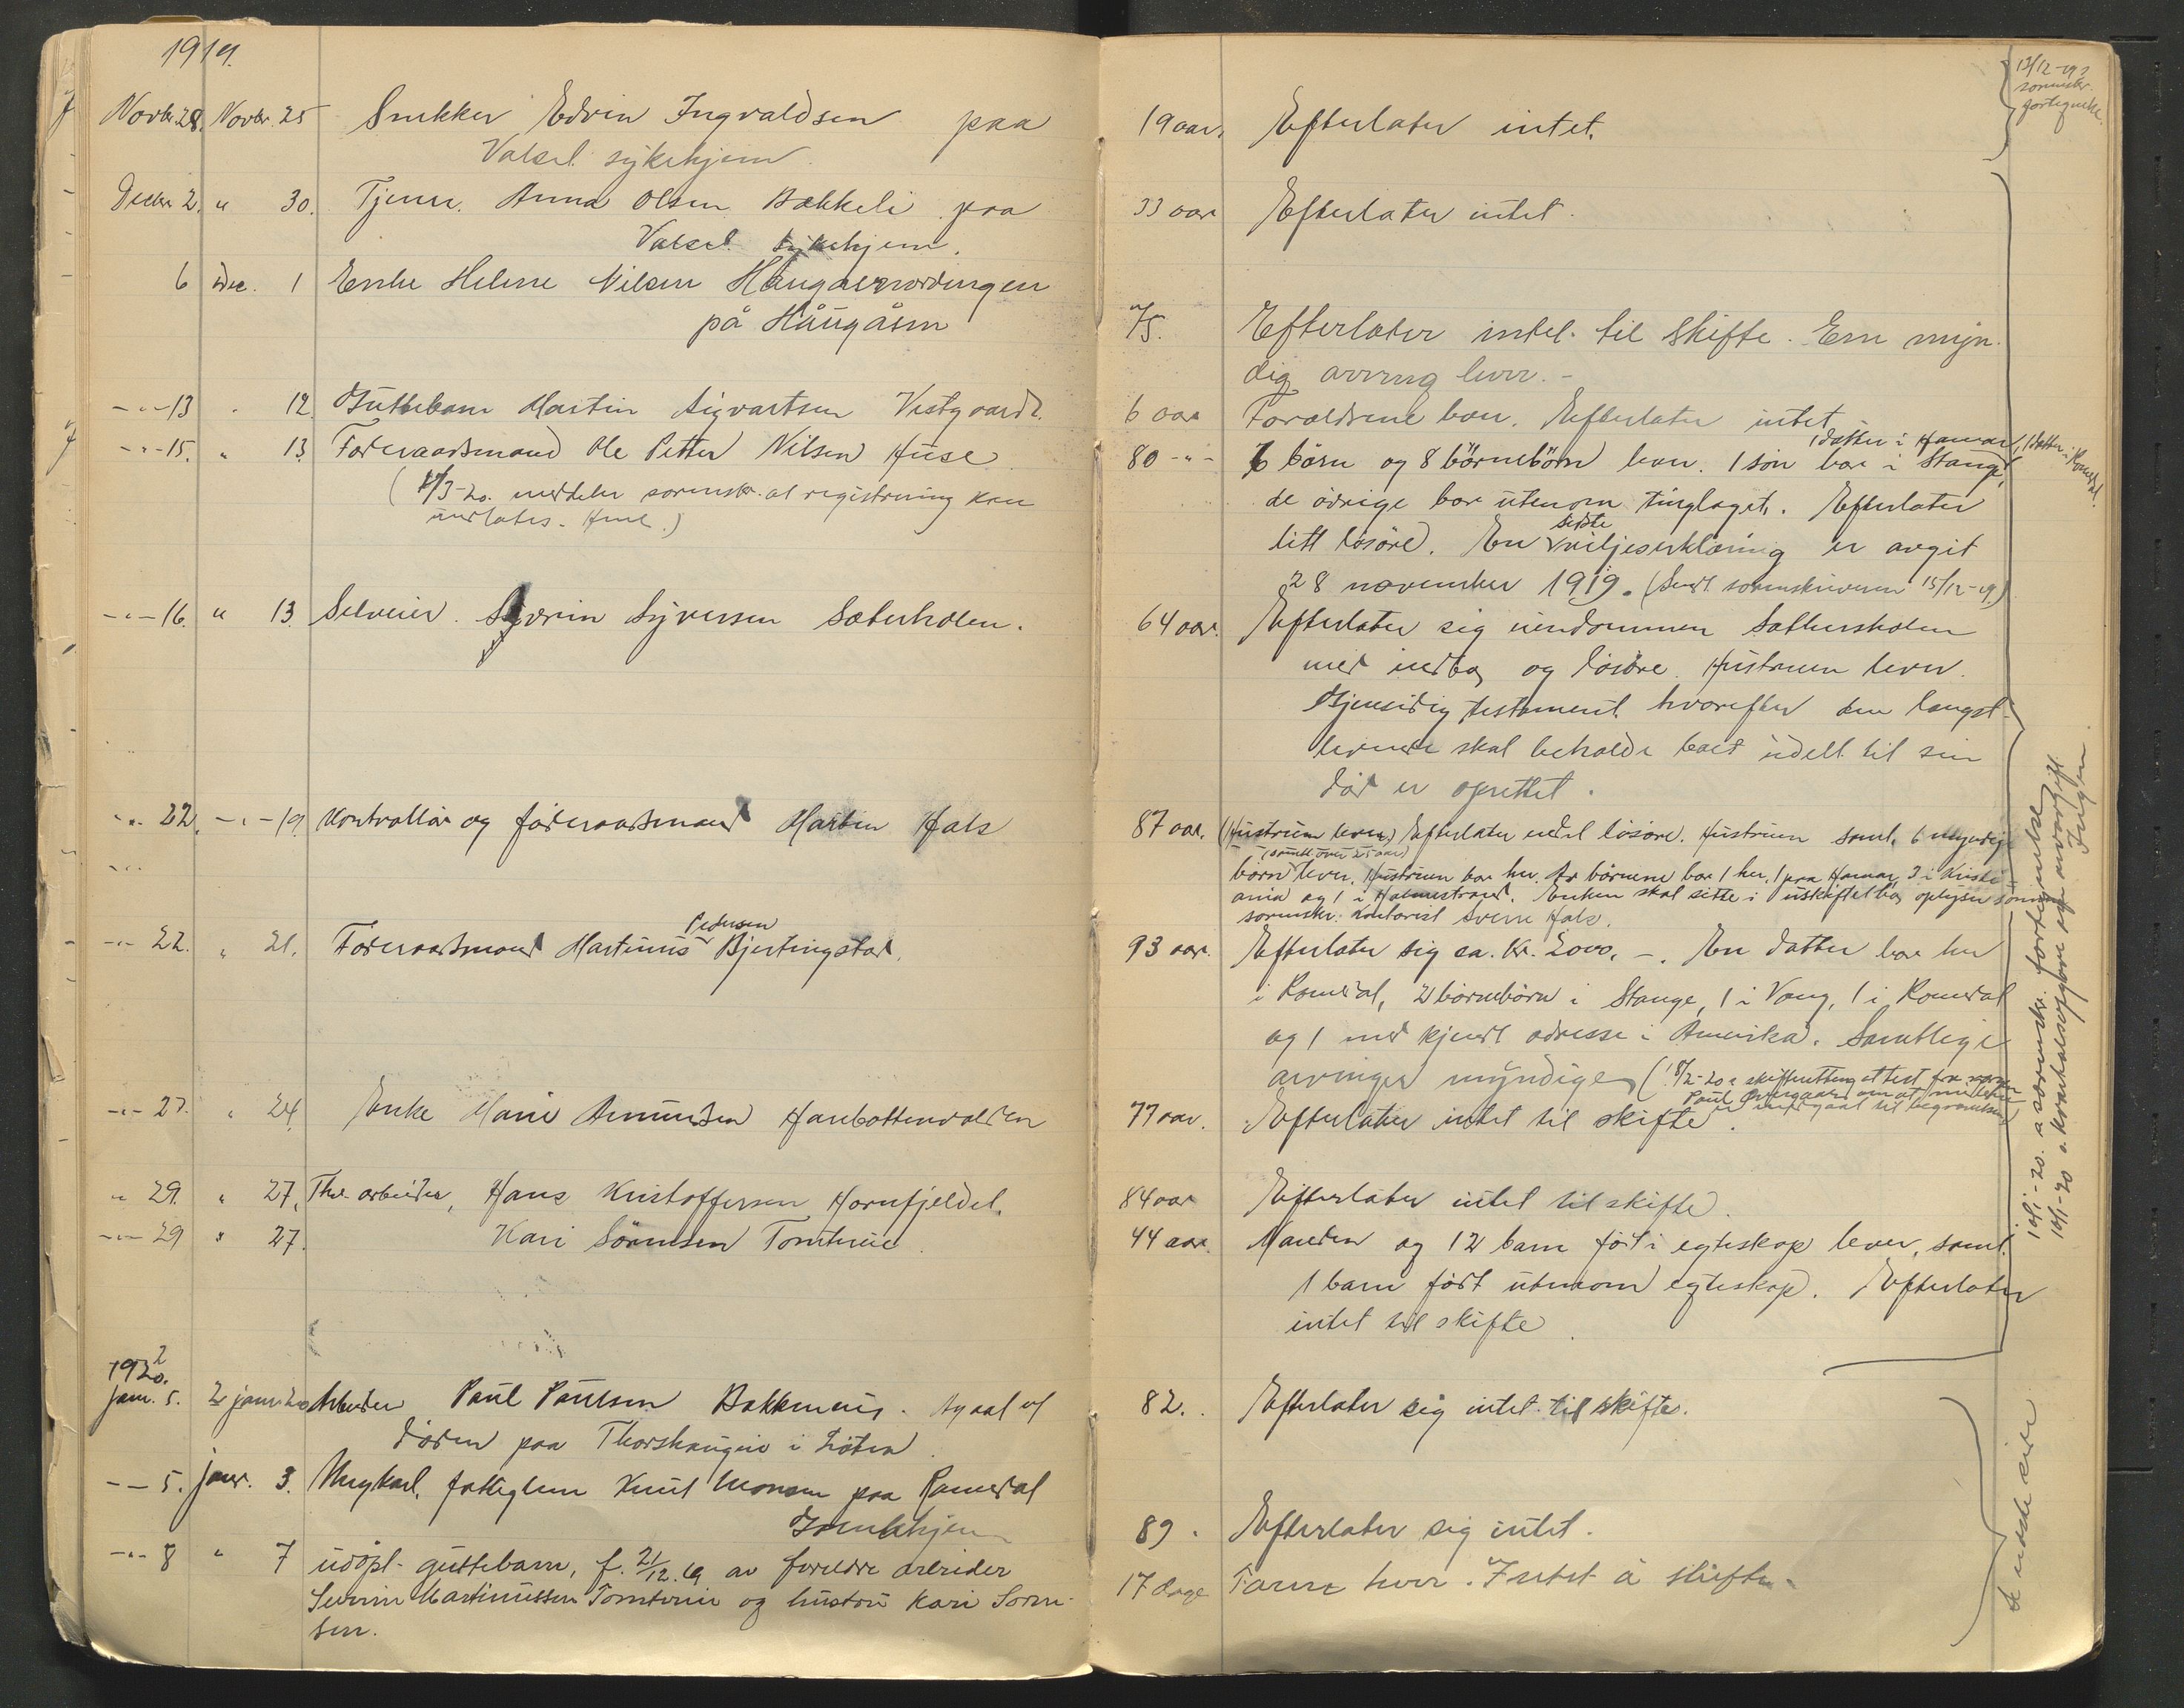 1919.
Novbr 28. Novbr. 25 Snekker Edvin Ingvaldsen paa
Valset sykehjem.
Decbr 2. " 30. Tjener. Anna Olsen Bakkeli paa
Valset sykehjem.
6 Dec. 1 Enke Helene Nilsen
på Håugåsen
-"-13 " 12. Guttebarn Martin Sigvartsen Vestgaard.
-"-15. " 13. Foderaadsmand Ole Petter Nilsen Huse
( /3-20. meddeler sorenskr. at registrering kan
undlates. )
-"-16. " 13. Selveier. Syverin Syversen Sæterholen.
-"-22. -"-19. Kontrollör og föderaadsmand Martin Hals
-"-
Pedersen
-"-22. " 21. Foderaadsmand Martinus Bjertingstad.
-"-27. " 24. Enke Marie Amundsen
" 29. " 27. arbeider, Hans Kristoffersen Hornfjeldet.
-"-29 " 27. Kari Sörensen Tomterud
1920.
Jan. 5. 2 jan. 20 Arbeider Paul Paulsen Bakkeneie. Avgaat ved
döden paa Thorshaugen i Löten.
-- 5. janr. 3. Ungkarl, fattiglem Knut Monsen paa Romedal
Gamlehjem
-"-8 " 7 udöpt guttebarn, f. 21/12.19 av foreldre arbeider
Severin Martinussen Tomterud og hustru Kari Sören-
sen.
13/12-19
sorenskr.
fortegnelse.
19 aar. Efterlater intet.
33 aar Efterlater intet.
75. Efterlater intet til skifte. Een myn-
dig arving lever.-
6 aar Foreldrene bor. Efterlater intet
1 datter i Hamar, 1 datter i Romedal.
80 -"- 6 börn og 8 börnebörn lever. 1 sön bor i Stange,
de övrige bor utenom tinglaget. Efterlater
sidste
litt lösöre. En viljeserklæring er avgit
28 november 1919. (Sendt sorenskriveren 15/12-19.)
64 aar. Efterlater sig eiendommen Sæthersholen
med indbo og lösöre. Hustruen lever.
Gjensidig testament hvorefter den længst-
levende skal beholde boet udelt til sin
död er oprettet.
87 aar. (Hustruen lever.) Efterlater endel lösöre. Hustruen samt. 6 myndige
(samtl. over 25 aar)
börn lever. Hustruen bor her. Av börnene bor 1 her, 1 paa Hamar, 3 i Kristi-
ania og 1 i Holmestrand. Enken skal sitte i uskiftet bo, oplyser sönnen
sorenskr. kontorist Sverre Hals.
93 aar. Efterlater sig ca. Kr. 2000. -. En datter bor her
i Romedal, 2 börnebörn i Stange, 1 i Vang, 1 i Romedal
og 1 med kjendt adresse i Amerika. Samtlige
arvinger myndige ( /2-20 skifteretten attest fra
Paul om at midlene
er medgaat til begravelsen)
77 aar. Efterlater intet til skifte.
84 aar Efterlater intet til skifte.
44 aar. Manden og 12 barn föd i egteskap lever, samt.
1 barn födt utenom egteskap. Efterlater
intet til skifte.
82. Efterlater sig intet til skifte.
89. Efterlater sig intet.
17 dage Farene lever. Intet å skifte.
10/1-20. a sorenskr. fortegnelse
10/1-20 a. kvartalsopgave
Ingen.